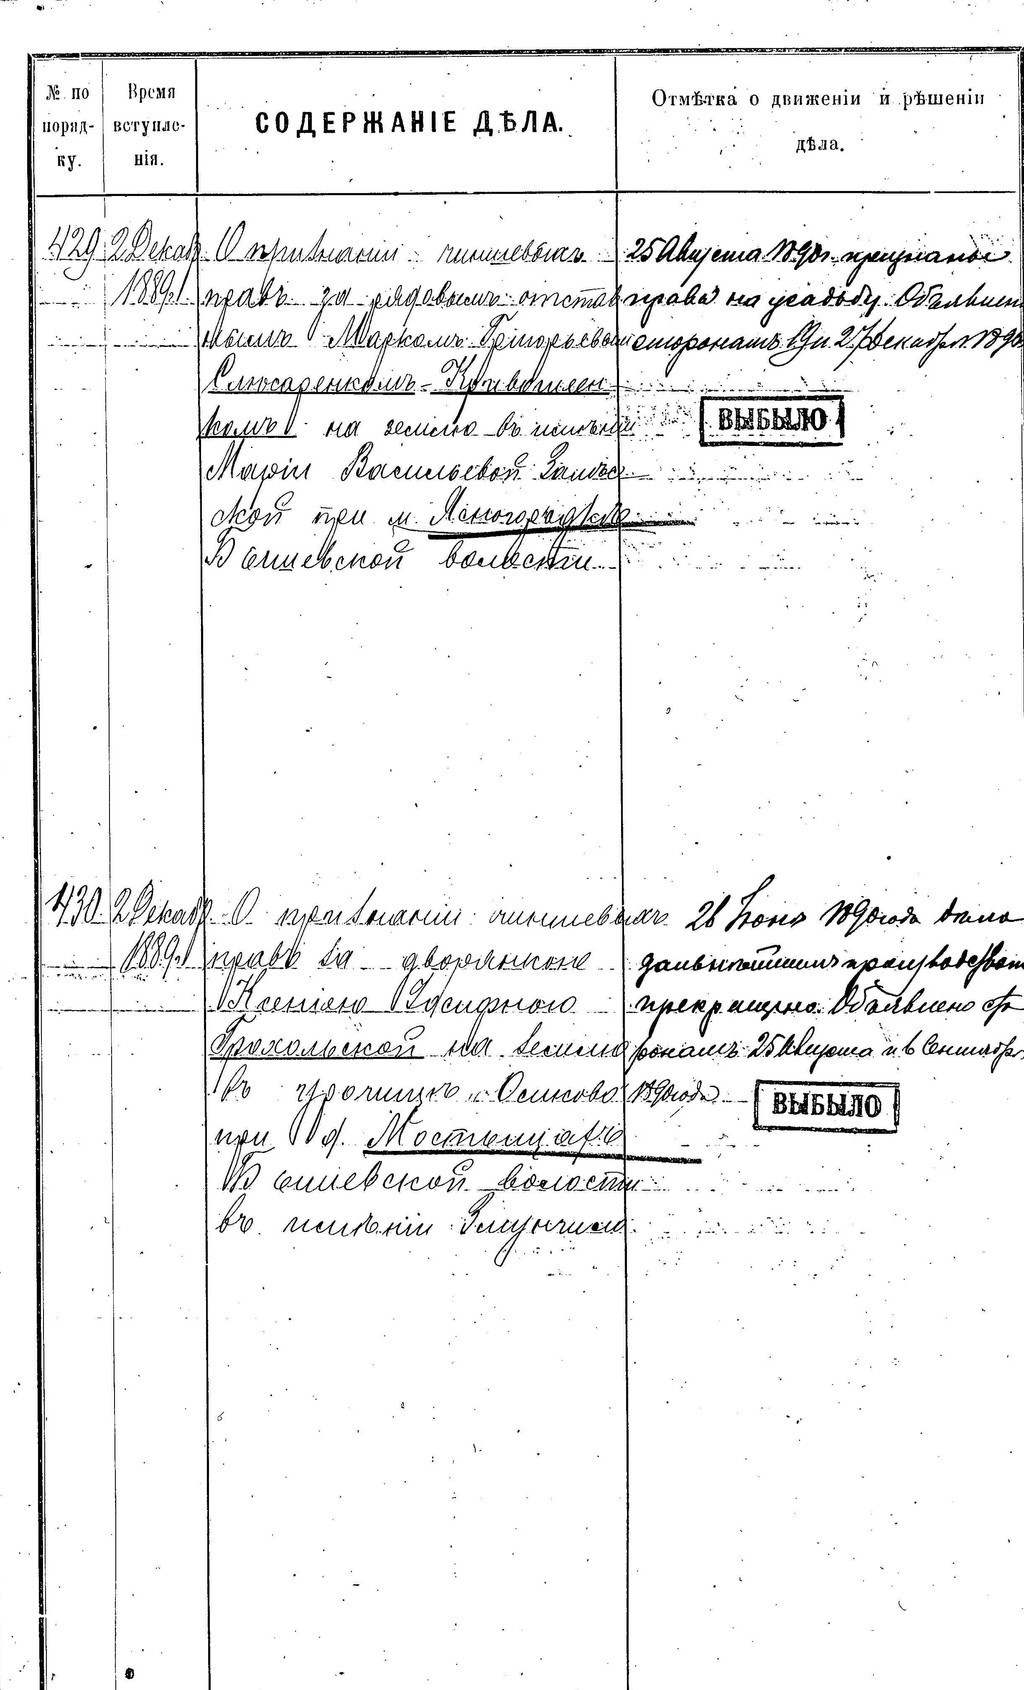 № по поряд- ку.
Время вступле- нія.
СОДЕРЖАНІЕ ДѢЛА.
Отмѣтка о движеніи и рѣшеніи
дѣла.
429
2 Декаб.
1889 г.
О признаніи чиншевыхъ
правъ за рядовымъ отстав
нымъ Маркомъ Григорьевым
Слюсаренкомъ-
комъ на землю въ имѣніи
Маріи Васильевой
ской при м. Ясногородкѣ
Бышевской волости
25 Августа 1890 г. признаны
права на усадьбу. Объявлен
сторонамъ 27 Декабря 1890
ВЫБЫЛО
430
2 Декаб
1889 г.
О признаніи чиншевыхъ
правъ за дворянкою
Ксеніею Іосифовою
Грохольской на землю
въ урочищѣ „Осиково
при д. Мостыщахъ
Бышевской волости
въ имѣніи
26 Іюня 1890 года дѣло
дальнѣйшимъ производством
прекращено. Объявлено сто
ронамъ 25 Августа и 6 Сентября
1890 года
ВЫБЫЛО